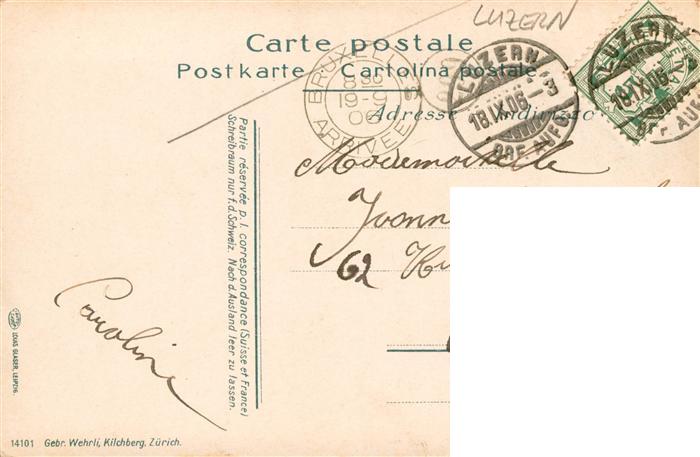 LUZERN
Carte postale
Postkarte Cartolina postale
Adresse Indirizzo
BRUXELLES
8
19-9
06
ARRIVEE
LUZERN
18.IX.06-9
BRF. AUFG.
LUZERN
18.IX.06
BRF. AUFG.
Mademoiselle
Yvonn
62
Partie réservée p. l. correspondance (Suisse et France)
Schreibraum nur f. d. Schweiz. Nach d. Ausland leer zu lassen.
Caroline
LOUIS GLASER, LEIPZIG.
14101 Gebr. Wehrli, Kilchberg, Zürich.